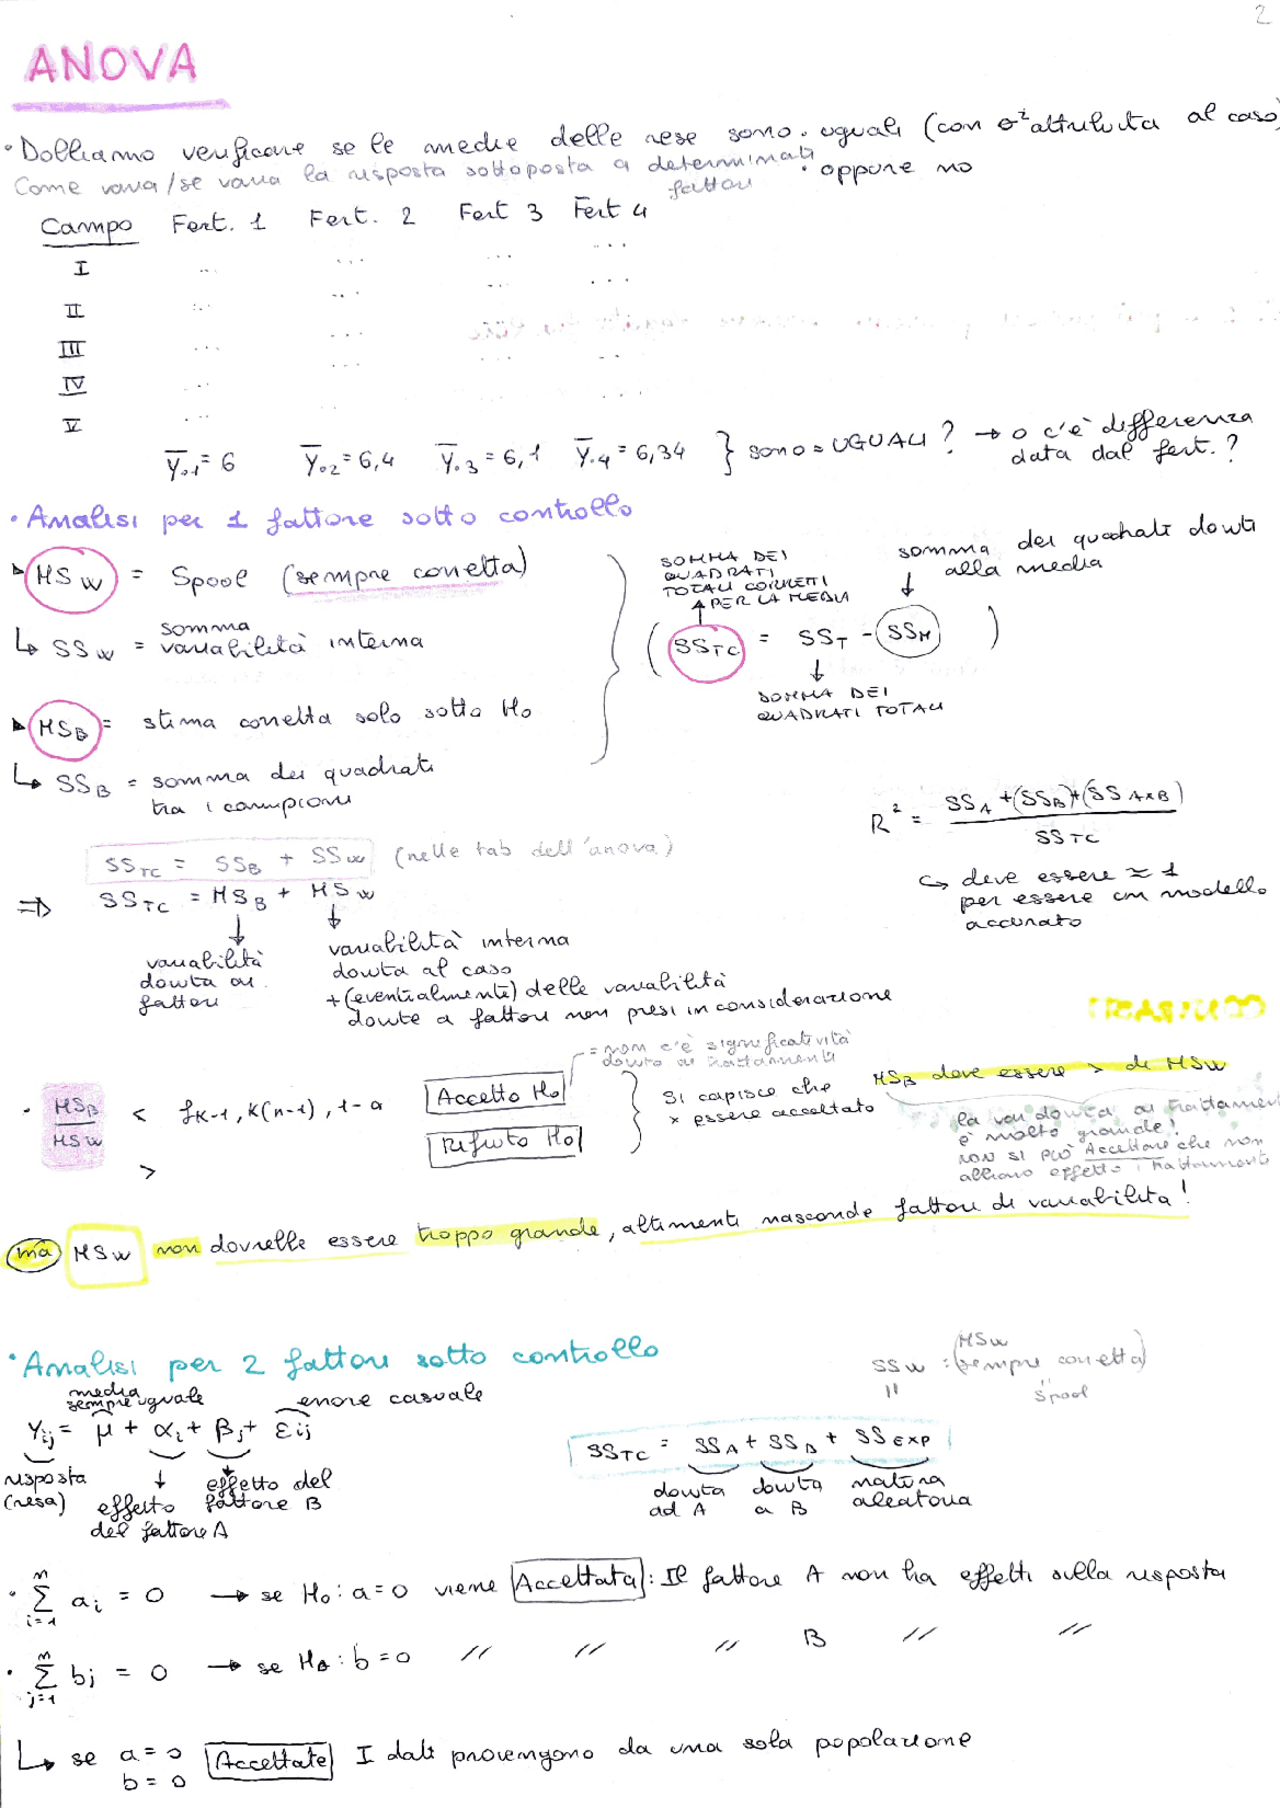 2
ANOVA
• Dobbiamo verificare se le medie delle rese sono • uguali (con σ² attribuita al caso)
• oppure no
Come varia/se varia la risposta sottoposta a determinati fattori
Campo Fert. 1 Fert. 2 Fert 3 Fert 4
I ... ... ... ...
II ... ... ...
III ... ... ... ...
IV ... ...
V ...
ȳ.1 = 6 ȳ.2 = 6,4 ȳ.3 = 6,1 ȳ.4 = 6,34 } sono = UGUALI? → o c'è differenza
data dal fert.?
• Analisi per 1 fattore sotto controllo
▸ MSW = Spool (sempre corretta)
↳ SSW = somma variabilità interna
▸ MSB = stima corretta solo sotto H0
↳ SSB = somma dei quadrati
tra i campioni
SOMMA DEI
QUADRATI
TOTALI CORRETTI
PER LA MEDIA
somma dei quadrati dovuti
alla media
(SSTC = SST - SSM)
SOMMA DEI
QUADRATI TOTALI
SSTC = SSB + SSW (nelle tab dell'anova)
⇒ SSTC = MSB + MSW
variabilità
dovuta ai
fattori
variabilità interna
dovuta al caso
+ (eventialmente) delle variabilità
dovute a fattori non presi in considerazione
R² = SSA + (SSB) + (SSA×B) / SSTC
↪ deve essere ≈ 1
per essere un modello
accurato
= non c'è significatività
dovuta ai trattamenti
• MSB / MSW < fK-1, K(n-1), 1-α Accetto H0
> Rifiuto H0
} Si capisce che
x essere accettato
MSB deve essere > di MSW
la var dovuta ai trattamenti
è molto grande!
NON SI PUÒ Accettare che non
abbiano effetto i trattamenti
ma MSW non dovrebbe essere troppo grande, altrimenti nasconde fattori di variabilità!
• Analisi per 2 fattori sotto controllo
media
sempre uguale
errore casuale
Yij = μ + αi + βj + εij
risposta
(resa)
effetto
del fattore A
effetto del
fattore B
MSW
SSW : (sempre corretta)
" "
Spool
SSTC = SSA + SSB + SSEXP
dovuta
ad A
dovuta
a B
natura
aleatoria
• Σ i=1 n ai = 0 → se H0: a=0 viene Accettata: Il fattore A non ha effetti sulla risposta
• Σ j=1 n bj = 0 → se H0: b=0 // // // B // //
↳ se a=0
b=0 Accettate I dati provengono da una sola popolazione